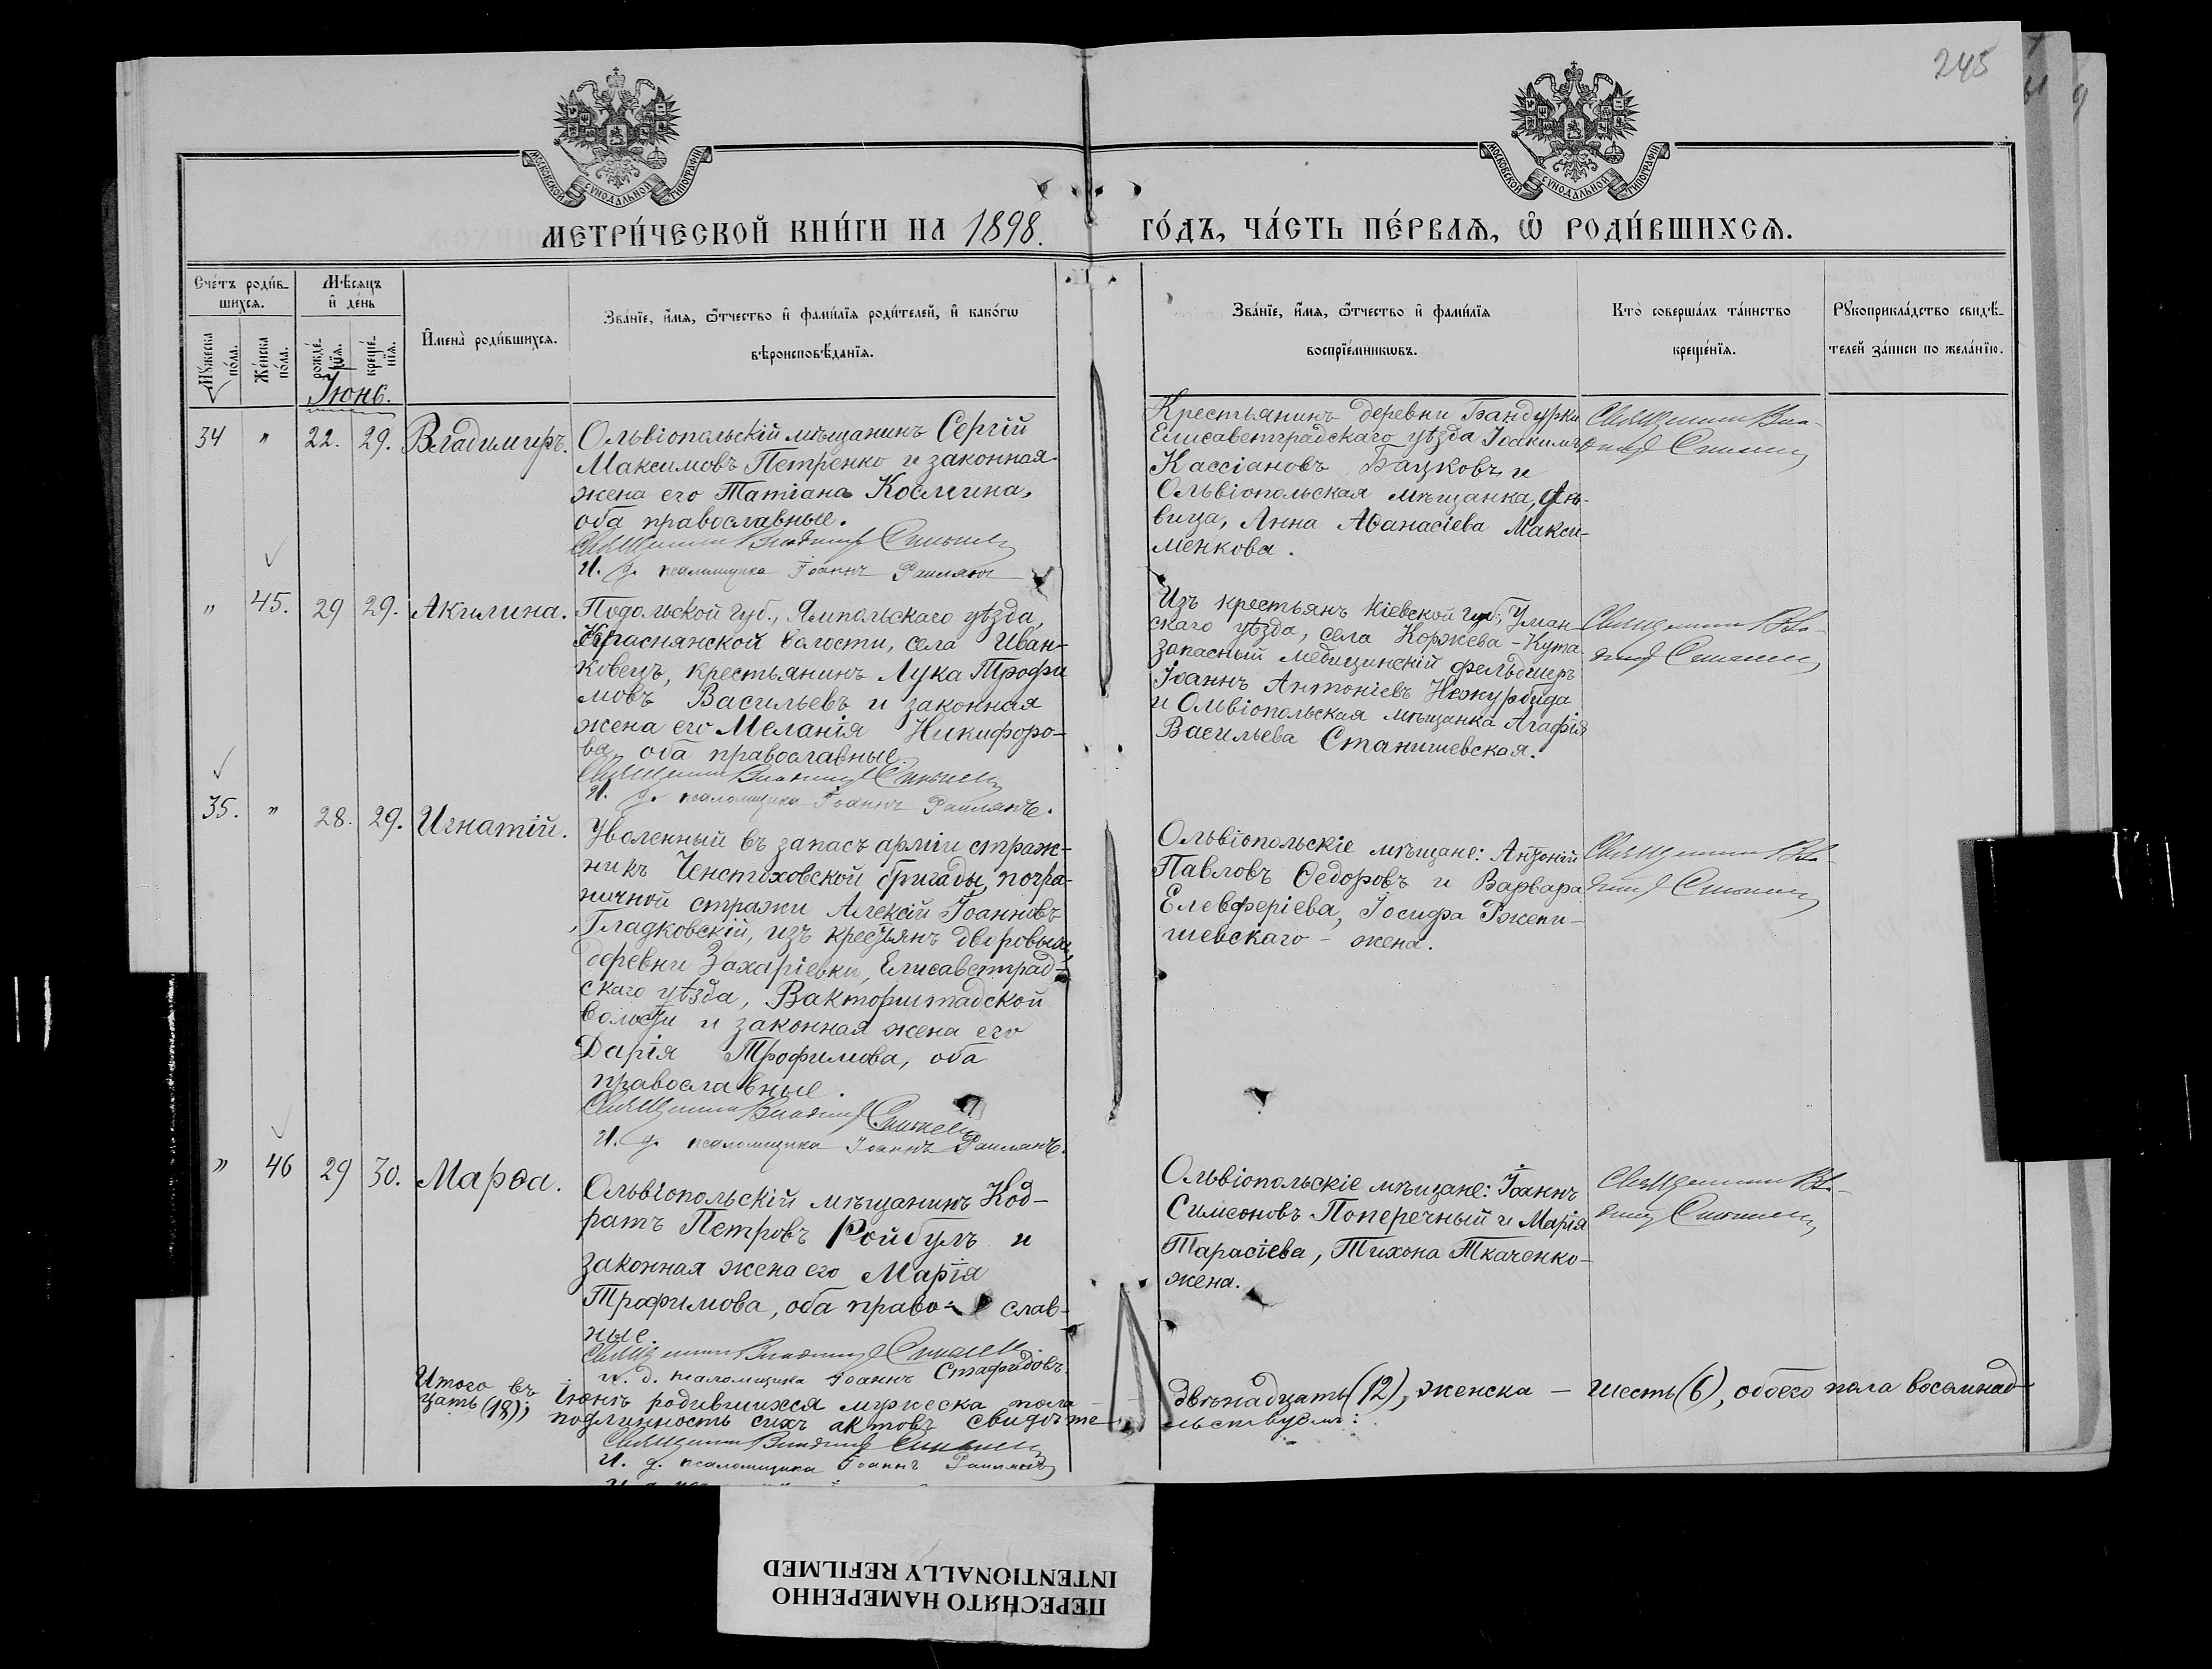 245
МОСКОВСКОЙ СѴНОДАЛЬНОЙ ТИПОГРАФІИ
МОСКОВСКОЙ СѴНОДАЛЬНОЙ ТИПОГРАФІИ
МЕТРИ́ЧЕСКОЙ КНИ́ГИ НА 1898.
ГО́ДЪ, ЧА́СТЬ ПЕ́РВАѦ, Ѽ РОДИ́ВШИХСѦ.
Сче́тъ роди́в-
шихсѧ.
Мѣ́сѧцъ
и҆ де́нь
Мꙋ́жеска
по́ла.
Же́нска
по́ла.
рожде́-
нїѧ.
креще́-
нїѧ.
И҆мена̀ роди́вшихсѧ.
Зва́нїе, и҆́мѧ, ѻ҆́тчество и҆ фами́лїѧ роди́телей, и҆ како́гѡ
вѣроисповѣ́данїѧ.
Зва́нїе, и҆́мѧ, ѻ҆́тчество и҆ фами́лїѧ
воспрїе́мникѡвъ.
Кто̀ соверша́лъ та́инство
креще́нїѧ.
Рꙋкоприкла́дство свидѣ́-
телей за́писи по жела́нїю.
Іюнь.
34 " 22. 29. Владимиръ.
Ольвіопольскій мѣщанинъ Сергій
Максимовъ Петренко и законная
жена его Татіана Космина,
оба православные.
Священникъ Владимиръ
И. д. псаломщика Іоаннъ
Крестьянинъ деревни Бандурки
Елисаветградскаго уѣзда Іоакимъ
Кассіановъ Бацковъ и
Ольвіопольская мѣщанка, дѣ-
вица, Анна Аѳанасіева Макси-
менкова.
Священникъ Вла-
димиръ
" 45. 29 29. Акилина.
Подольской губ., Ямпольскаго уѣзда,
Краснянской волости, села Иван-
ковецъ, крестьянинъ Лука Трофи
мовъ Васильевъ и законная
жена его Меланія Никифоро-
ва, оба православные.
Священникъ Владимиръ
И. д. псаломщика Іоаннъ
Изъ крестьянъ Кіевской губ., Уман
скаго уѣзда, села Коржева-Кута
запасный медицинскій фельдшеръ
Іоаннъ Антоніевъ Нежурбида
и Ольвіопольская мѣщанка Агафія
Васильева Станишевская.
Священникъ Вла-
димиръ
35. " 28. 29. Игнатій.
Уволенный въ запасъ арміи страж-
никъ Ченстоховской бригады, погра-
ничной стражи Алексій Іоанновъ
Гладковскій, изъ крестьянъ дворовыхъ
деревни Захаріевки, Елисаветград-
скаго уѣзда, Викторштадской
волости и законная жена его
Дарія Трофимова, оба
православные.
Священникъ Владимиръ
И. д. псаломщика Іоаннъ
Ольвіопольскіе мѣщане: Антоній
Павловъ Ѳедоровъ и Варвара
Елевферіева, Іосифа Ржепи-
шевскаго - жена.
Священникъ Вла-
димиръ
" 46 29 30. Марѳа.
Ольвіопольскій мѣщанинъ Код-
ратъ Петровъ Ройбулъ и
законная жена его Марія
Трофимова, оба право- слав-
ные.
Священникъ Владимиръ
и. д. псаломщика Іоаннъ Стафидовъ.
Ольвіопольскіе мѣщане: Іоаннъ
Симеоновъ Поперечный и Марія
Тарасіева, Тихона Ткаченко-
жена.
Священникъ Вла-
димиръ
Итого въ Іюнѣ родившихся мужеска пола двѣнадцать (12), женска — шесть (6), обоего пола восемнад-
цать (18); подлинность сихъ актовъ свидѣтельствуемъ:
Священникъ Владимиръ
И. д. псаломщика Іоаннъ
ПЕРЕСНЯТО НАМЕРЕННО
INTENTIONALLY REFILMED